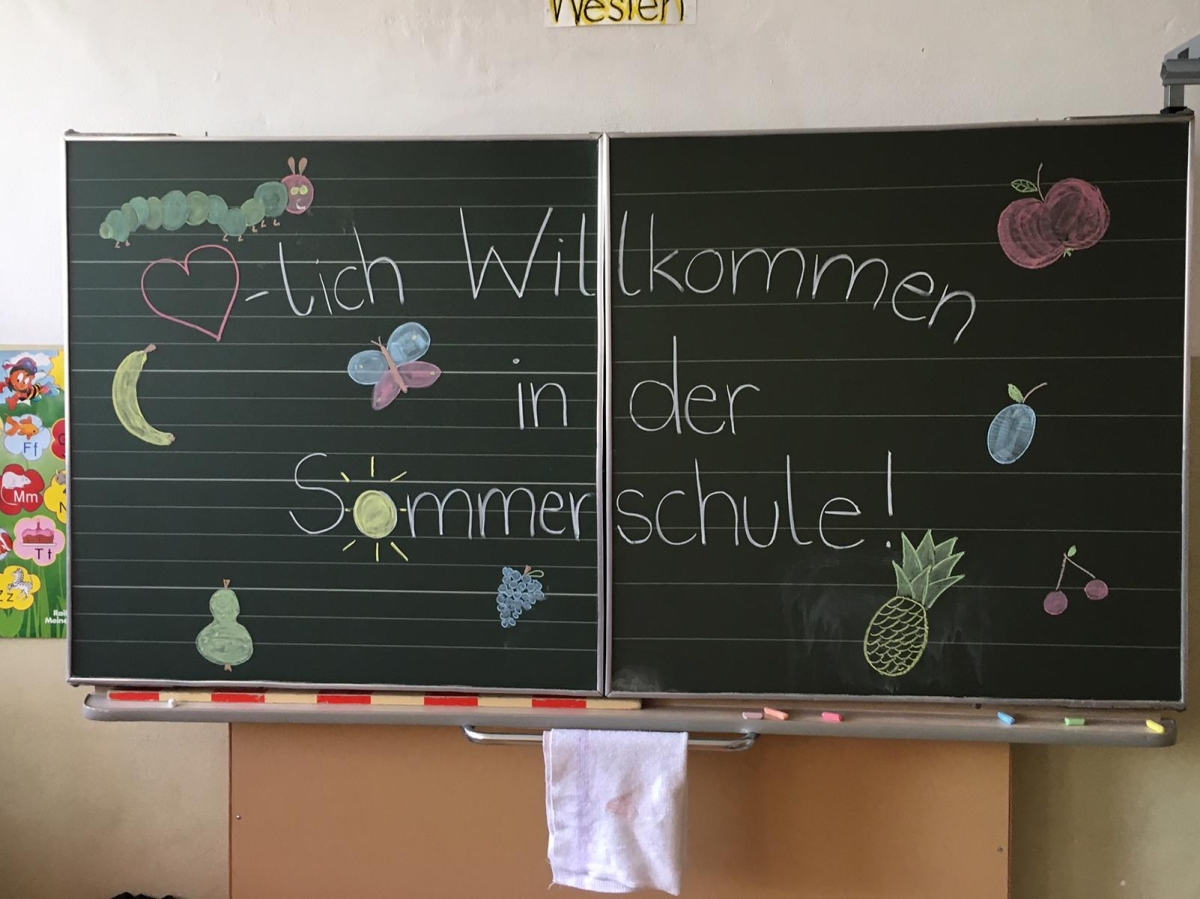 Westen
♡-lich Willkommen
in der
Sommerschule!
Ff
Mm
N
Tt
Zz